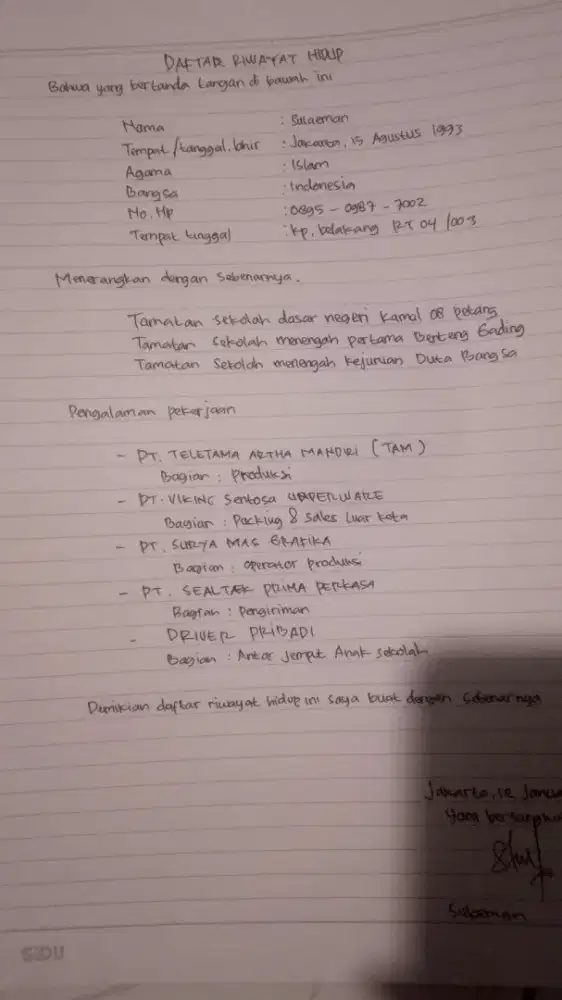 DAFTAR RIWAYAT HIDUP
Bahwa yang bertanda tangan di bawah ini
Nama : Sulaeman
Tempat/tanggal.lahir : Jakarta, 15 Agustus 1993
Agama : Islam
Bangsa : Indonesia
No. Hp : 0895 - 0987 - 7002
Tempat tinggal : kp. belakang RT 04 /003
Menerangkan dengan sebenarnya.
Tamatan sekolah dasar negeri Kamal 08 petang
Tamatan sekolah menengah pertama Berteng Gading
Tamatan Sekolah menengah Kejuruan Duta Bangsa
Pengalaman pekerjaan
- PT. TELETAMA ARTHA MANDIRI (TAM)
Bagian : Produksi
- PT. VIKING Sentosa
Bagian : Packing & Sales Luar Kota
- PT. SURYA MAS GRAFIKA
Bagian : operator produksi
- PT. SEALTEK PRIMA PERKASA
Bagian : pengiriman
- DRIVER PRIBADI
Bagian : Antar Jemput Anak sekolah
Demikian daftar riwayat hidup ini saya buat dengan sebenarnya
Jakarta,
Yang
Sulaeman
SIDU